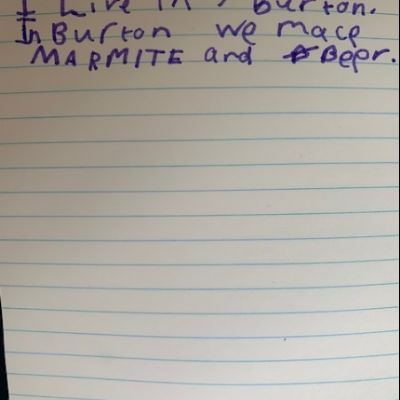 I Live in Burton.
In Burton we mace
MARMITE and Beer.